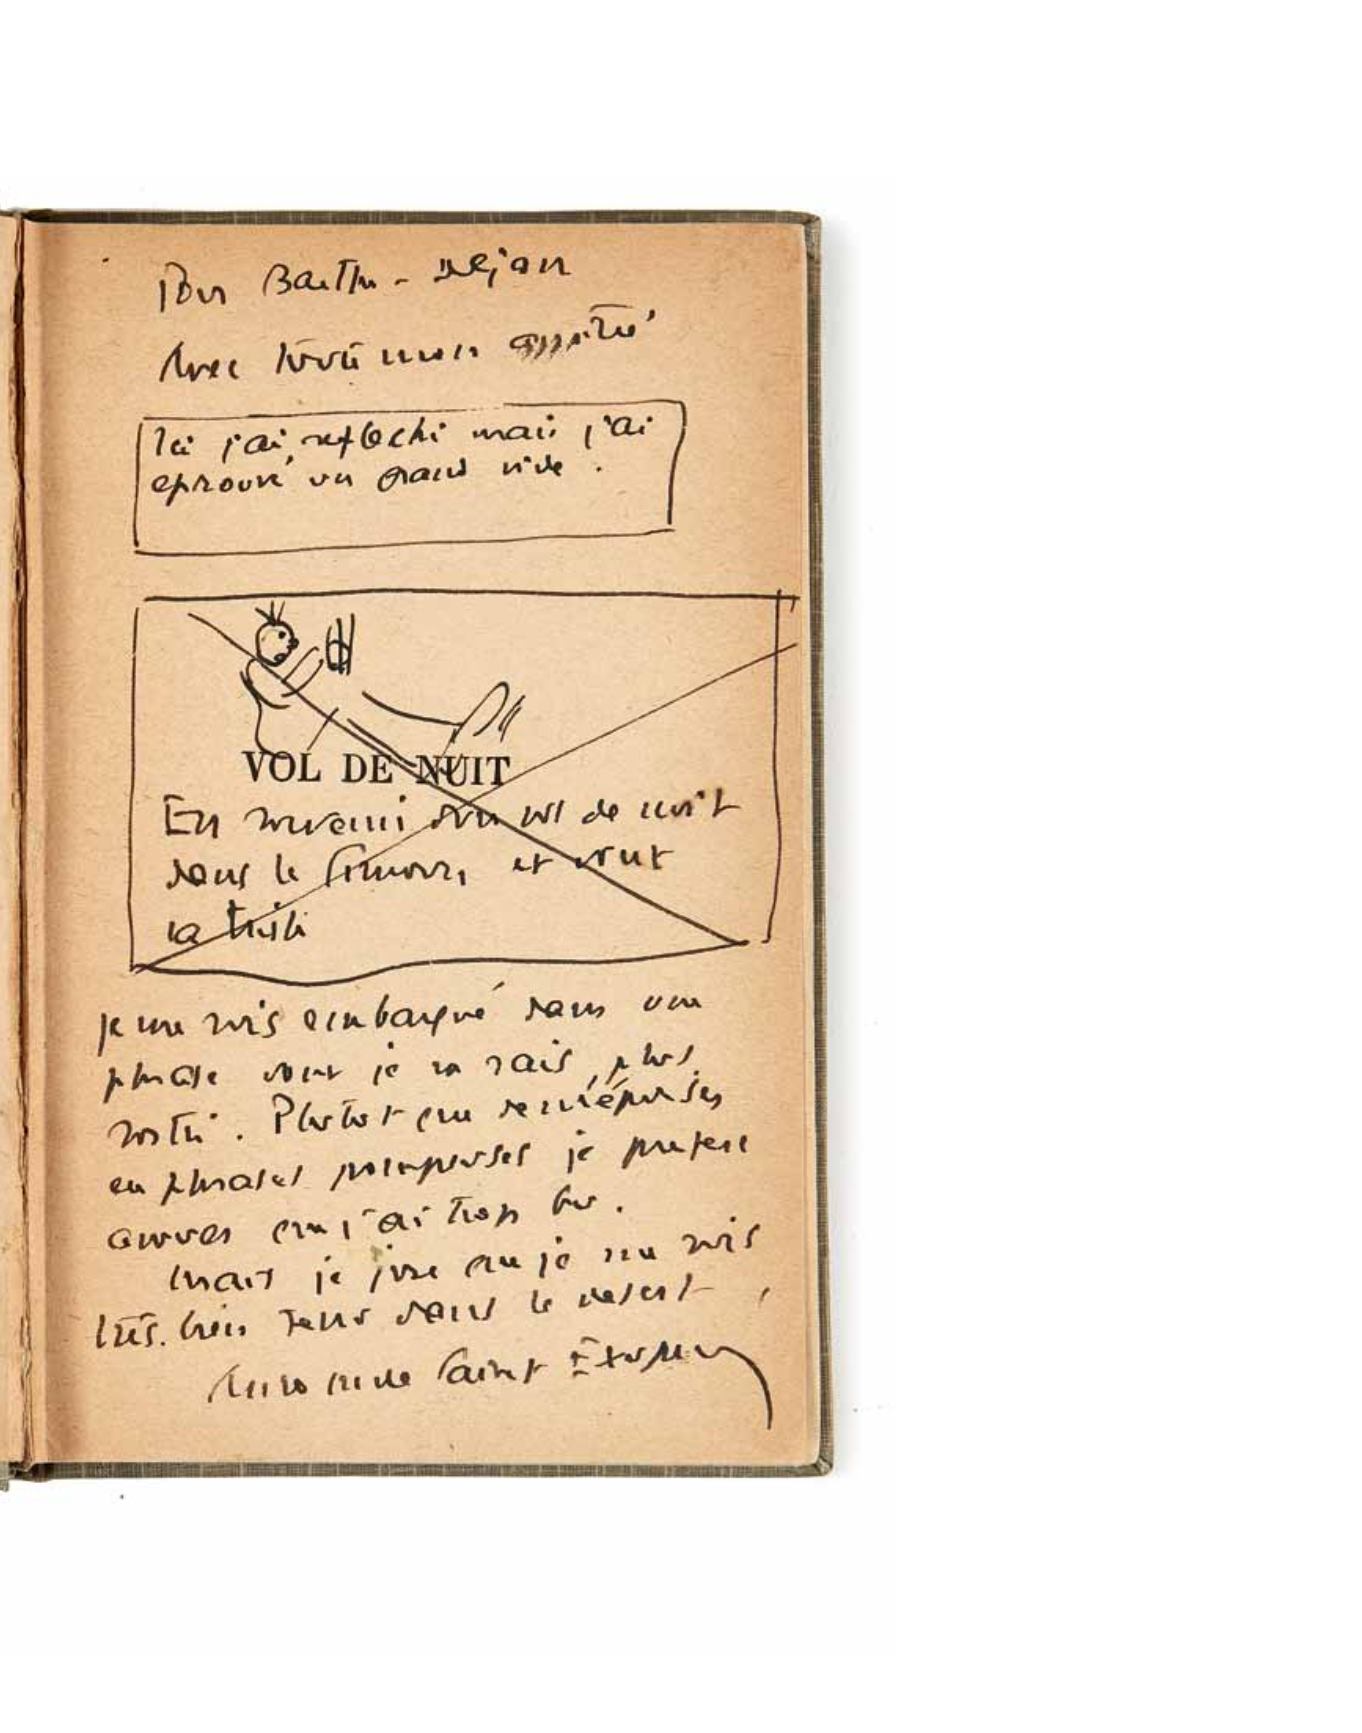 Pour Barthe-Dejean
Avec toute mon amitié
Ici j'ai reflechi mais j'ai
eprouvé un grand vide.
VOL DE NUIT
En souvenir d'un vol de nuit
dans le Limousin et dont
la triste
je me suis embarqué dans une
phrase dont je ne sais plus
sortir. Plutot que de m'épuiser
en phrases pompeuses je prefere
avouer que j'ai trop bu.
Mais je jure que je me suis
très bien tenu dans le desert,
Antoine de Saint Exupery